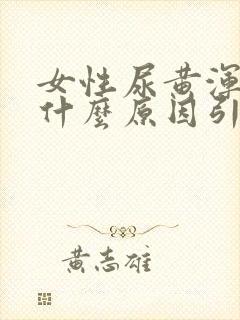 女性尿黄渾
什麼原因引
黄志雄